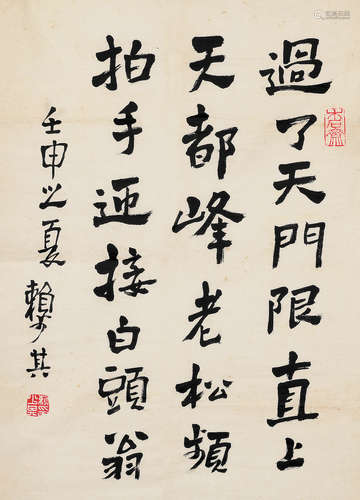 過了天門限直上
天都峰老松頻
拍手迎接白頭翁
壬申之夏賴少其